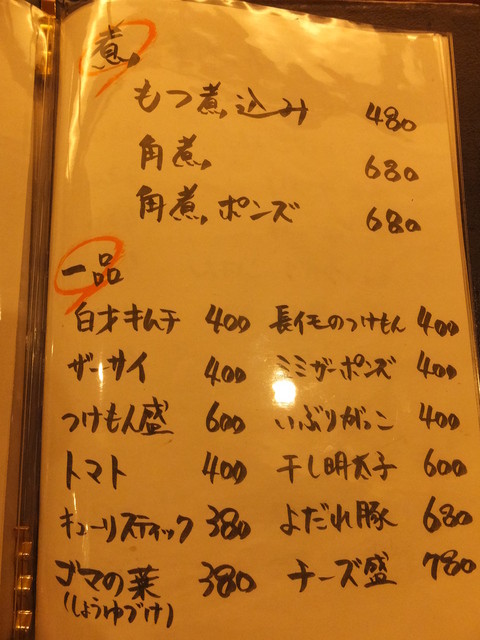 煮
もつ煮込み 480
角煮 680
角煮ポンズ 680
一品
白才キムチ 400 長イモのつけもん 400
ザーサイ 400 ミミガーポンズ 400
つけもん盛 600 いぶりがっこ 400
トマト 400 干し明太子 600
キューリスティック 380 よだれ豚 680
ゴマの葉 380 チーズ盛 780
(しょうゆづけ)